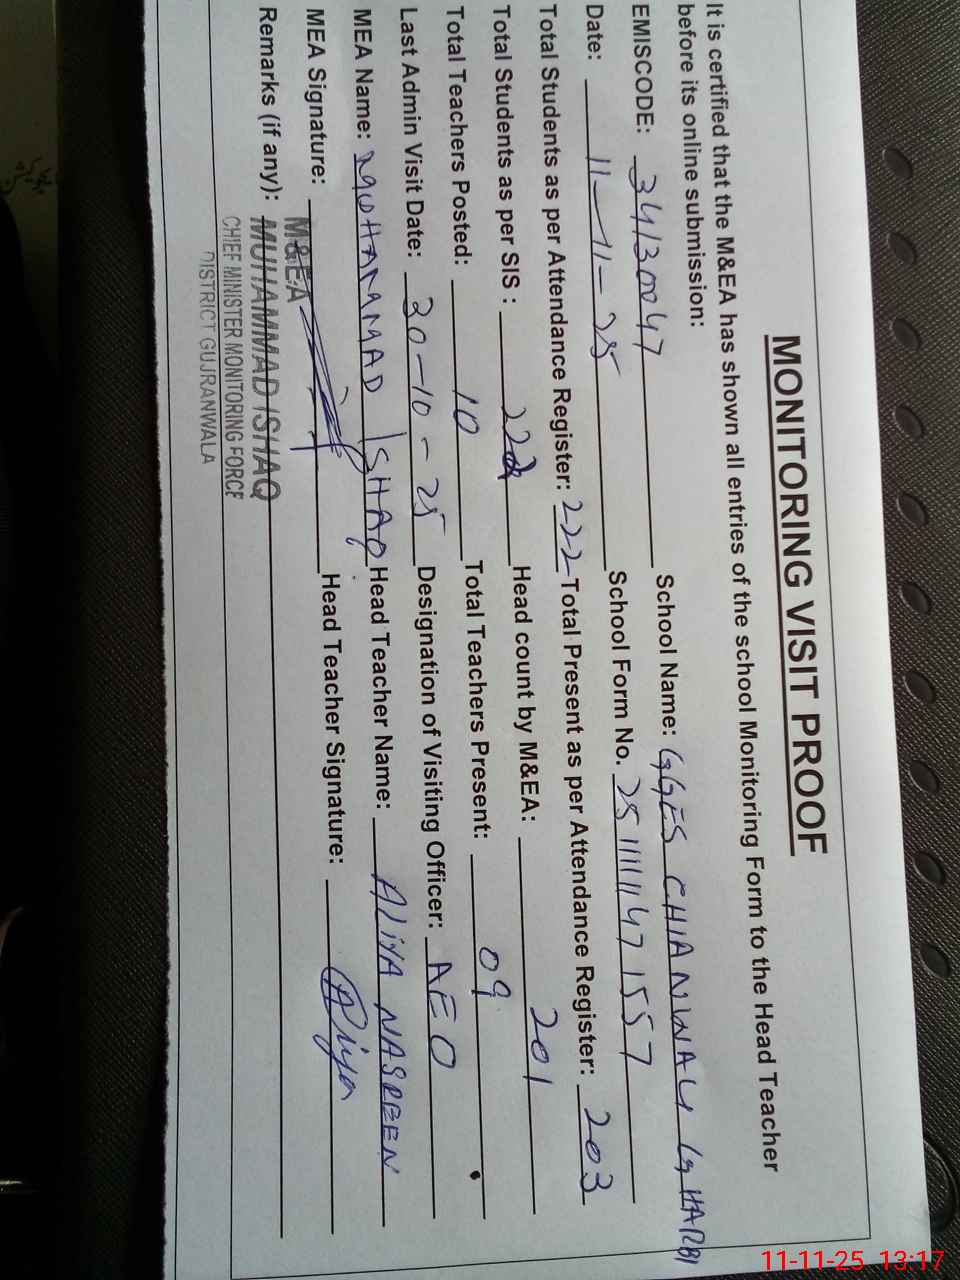 MONITORING VISIT PROOF
It is certified that the M&EA has shown all entries of the school Monitoring Form to the Head Teacher
before its online submission:
EMISCODE: 34130047 School Name: GGES CHIANWALI GHARBI
Date: 11-11-25 School Form No. 251111147157
Total Students as per Attendance Register: 222 Total Present as per Attendance Register: 203
Total Students as per SIS : 222 Head count by M&EA: 201
Total Teachers Posted: 10 Total Teachers Present: 09
Last Admin Visit Date: 30-10-25 Designation of Visiting Officer: AEO
MEA Name: MUHAMMAD ISHAQ Head Teacher Name: ALIYA NASREEN
MEA Signature: Head Teacher Signature: Aliya
Remarks (if any):
M&EA
MUHAMMAD ISHAQ
CHIEF MINISTER MONITORING FORCE
DISTRICT GUJRANWALA
11-11-25 13:17